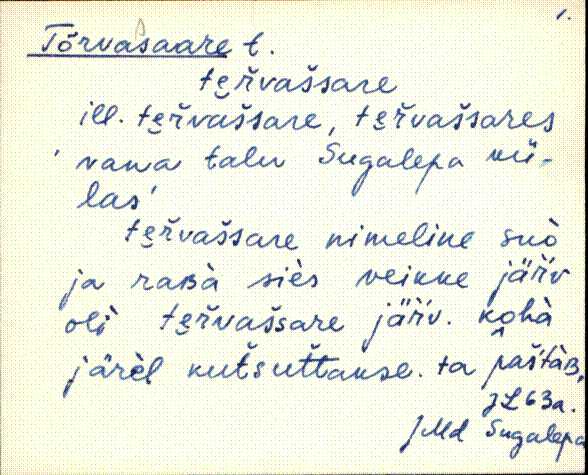 1.
Tõrvasaare t.
te̮řvašsare
ill. te̮řvašsare, te̮řvašsares
'vana talu Sugalepa kü-
las'
te̮řvašsare nimeline suò
ja raʙà siès veikke jäřv
olì te̮řvašsare jäřv. ko̬hà
järèl kutšuttakse. ta paštàʙ,
JL 63a.
JMd Sugalepa